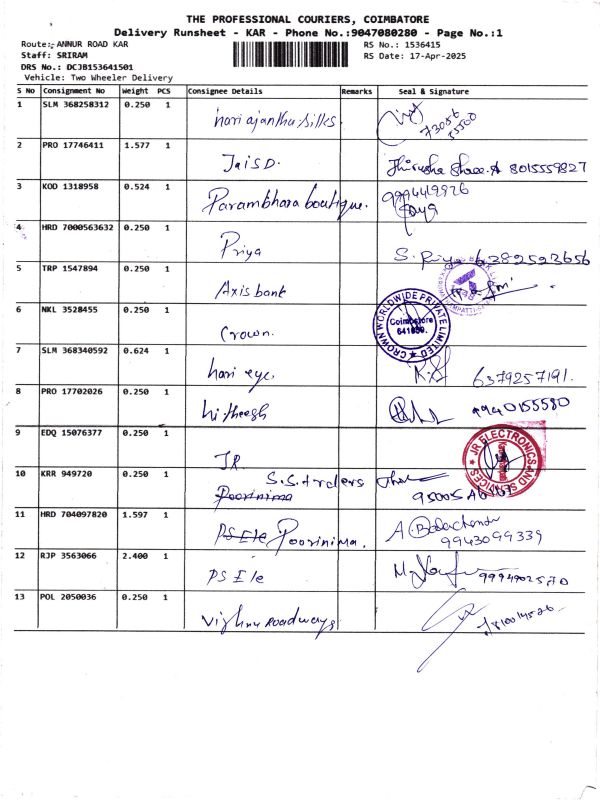 THE PROFESSIONAL COURIERS, COIMBATORE
Delivery Runsheet - KAR - Phone No.:9047080280 - Page No.:1
Route: ANNUR ROAD KAR
RS No.: 1536415
Staff: SRIRAM
RS Date: 17-Apr-2025
DRS No.: DCJB153641501
Vehicle: Two Wheeler Delivery
S No Consignment No Weight PCS Consignee Details Remarks Seal & Signature
1 SLM 368258312 0.250 1 hari ajantha silks 73056 55500
2 PRO 17746411 1.577 1 Jai S D. 8015559827
3 KOD 1318958 0.524 1 Parambhara boutique. 9994419926
4 HRD 7000563632 0.250 1 Priya S. Priya 6282593656
5 TRP 1547894 0.250 1 Axis bank
6 NKL 3528455 0.250 1 Crown. CROWN WORLDWIDE PRIVATE LIMITED Coimbatore 641659.
7 SLM 368340592 0.624 1 hari eye. 6379257191.
8 PRO 17702026 0.250 1 hitheesh 9940155580
9 EDQ 15076377 0.250 1 JR JR ELECTRONICS AND SERVICES
10 KRR 949720 0.250 1 S.S. traders Poorinima
11 HRD 704097820 1.597 1 PS Ele Poorinima. A. Balachander 9943099339
12 RJP 3563066 2.400 1 PS Ele 9994902570
13 POL 2050036 0.250 1 Vishnu roadways